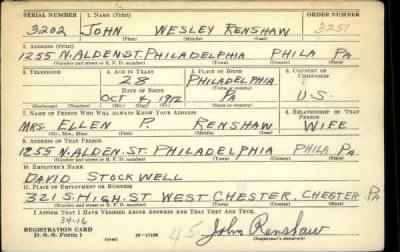 SERIAL NUMBER 1. NAME (Print) ORDER NUMBER
3202 JOHN WESLEY RENSHAW 3251
(First) (Middle) (Last)
2. ADDRESS (Print)
1255 N. ALDEN ST. PHILADELPHIA PHILA PA
(Number and street or R. F. D. number) (Town) (County) (State)
3. TELEPHONE 4. AGE IN YEARS 5. PLACE OF BIRTH 6. COUNTRY OF CITIZENSHIP
28 PHILADELPHIA
DATE OF BIRTH (Town or county)
OCT 4, 1912 PA U.S.
(Exchange) (Number) (Mo.) (Day) (Yr.) (State or country)
7. NAME OF PERSON WHO WILL ALWAYS KNOW YOUR ADDRESS 8. RELATIONSHIP OF THAT PERSON
MRS. ELLEN P. RENSHAW WIFE
(Mr., Mrs., Miss) (First) (Middle) (Last)
9. ADDRESS OF THAT PERSON
1255 N. ALDEN. ST. PHILADELPHIA PHILA PA.
(Number and street or R. F. D. number) (Town) (County) (State)
10. EMPLOYER'S NAME
DAVID STOCKWELL
11. PLACE OF EMPLOYMENT OR BUSINESS
321 S. HIGH. ST WEST CHESTER, CHESTER PA
(Number and street or R. F. D. number) (Town) (County) (State)
I AFFIRM THAT I HAVE VERIFIED ABOVE ANSWERS AND THAT THEY ARE TRUE.
34-16
REGISTRATION CARD
D. S. S. FORM 1 (over) 16-17105
45 John Renshaw
(Registrant's signature)